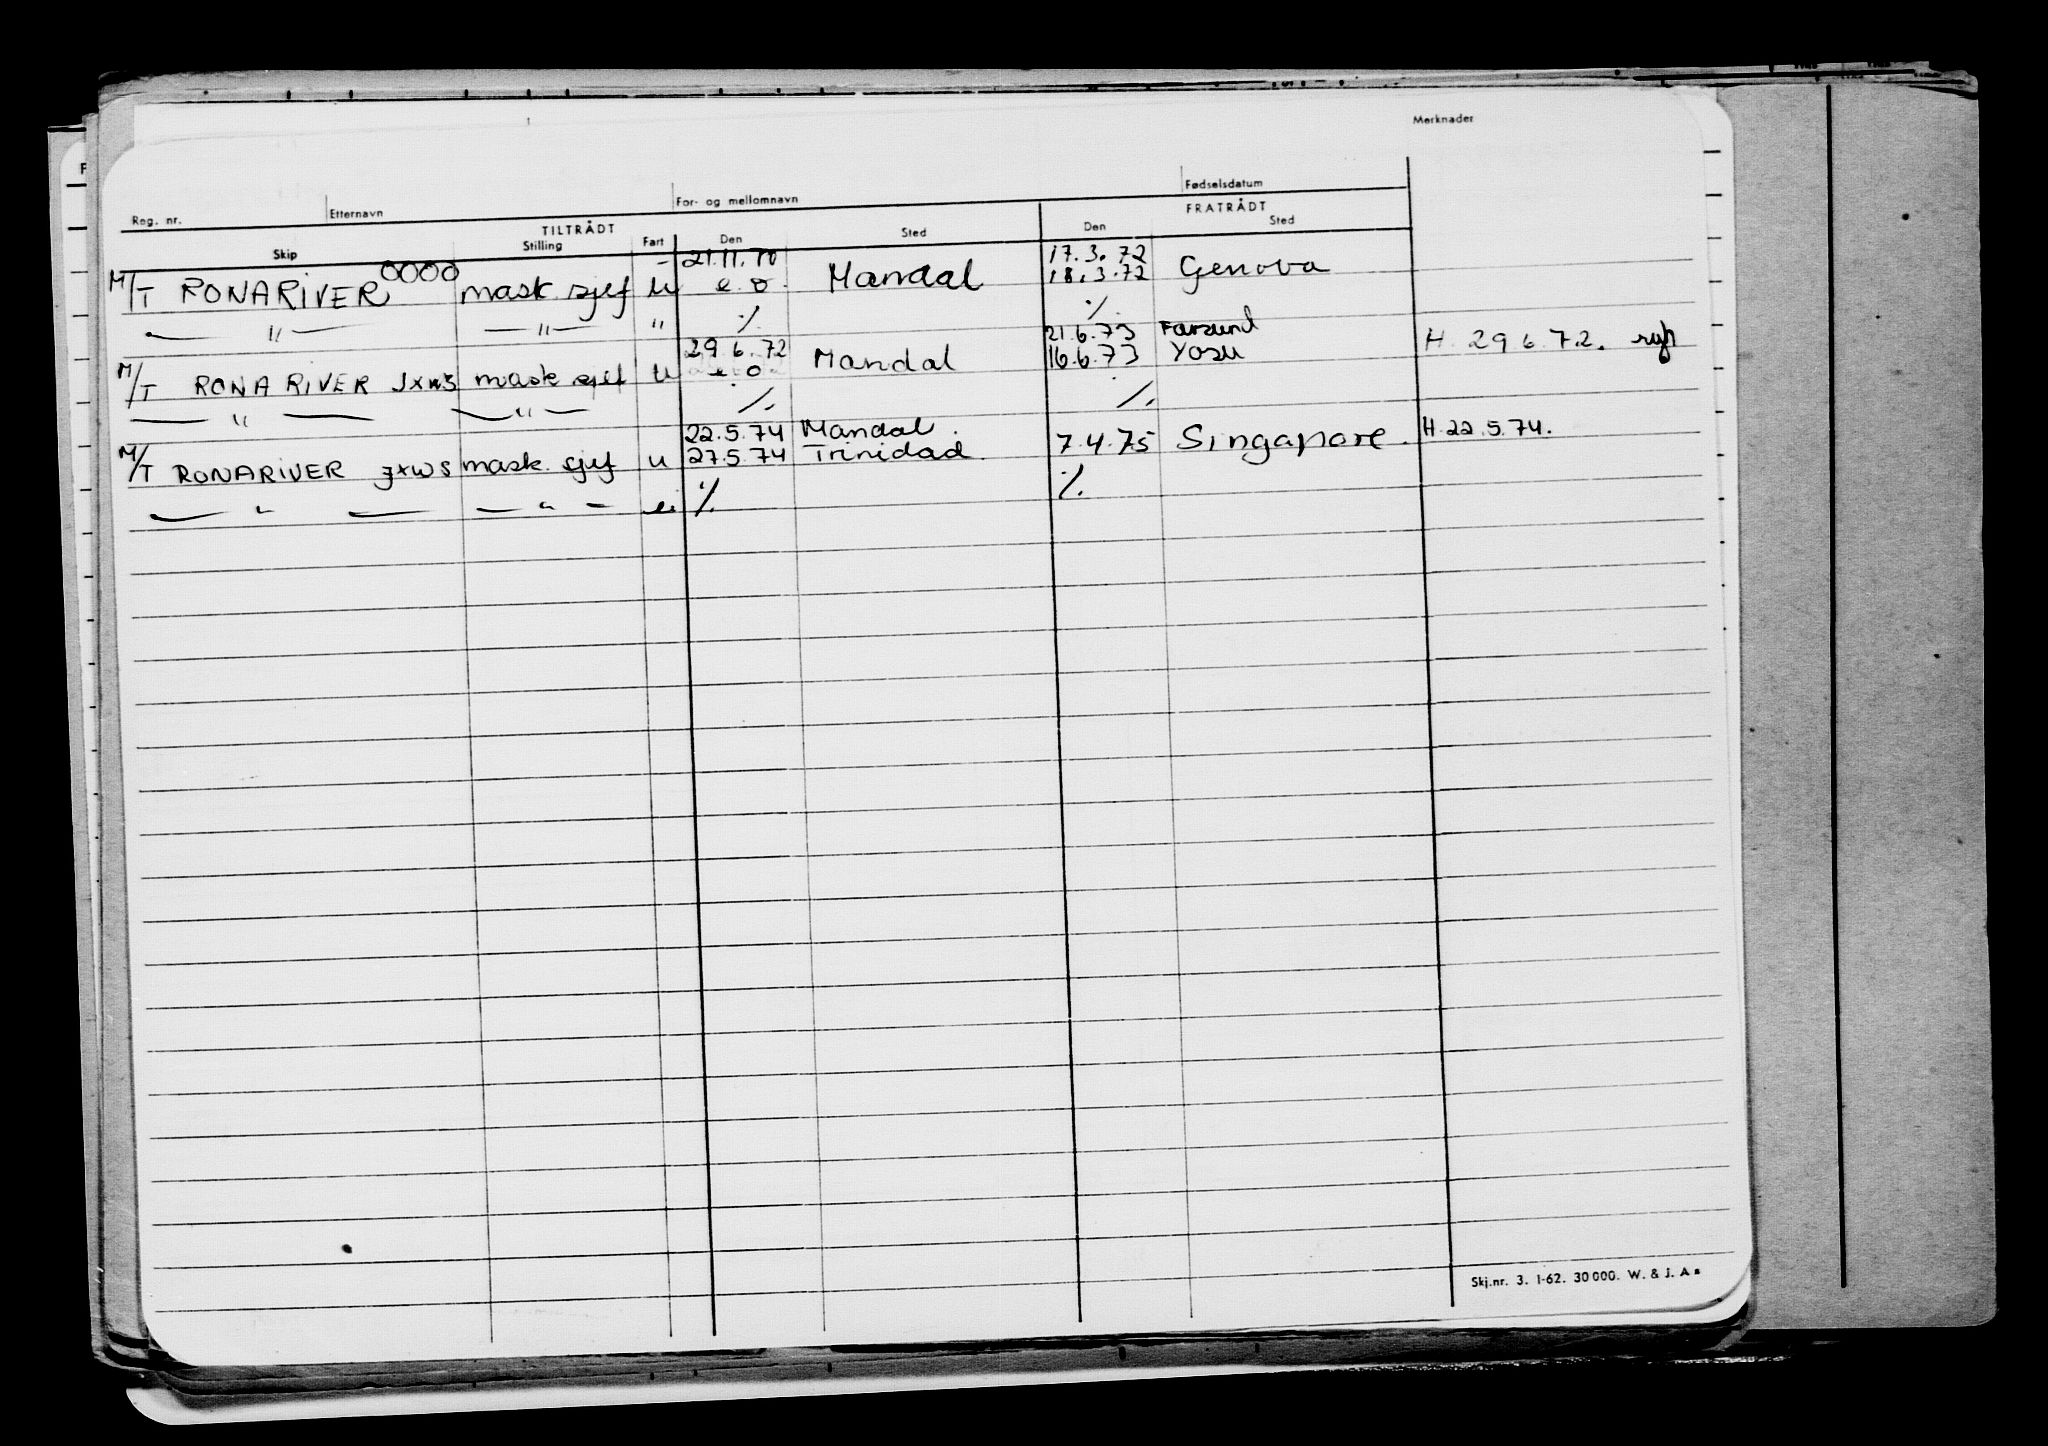 Merknader
Reg. nr. Etternavn For- og mellomnavn Fødselsdatum
TILTRÅDT FRATRÅDT
Skip Stilling Fart Den Sted Den Sted
21.11.70 17.3.72
M/T RONARIVER OOOO mask. sjef u e.o. Mandal 18.3.72 Genova
— " — — " — " ./. ./.
29.6.72 21.6.73 Farsund
M/T RONA RIVER JXWS mask sjef u e o Mandal 16.6.73 Yosu H. 29 6.72.
— " — — " — ./. ./.
22.5.74 Mandal.
M/T RONARIVER JXWS mask. sjef u 27.5.74 Trinidad. 7.4.75 Singapore. H. 22.5.74.
— " — — " — ./. ./.
Skj.nr. 3. 1-62. 30 000. W. & J. A s